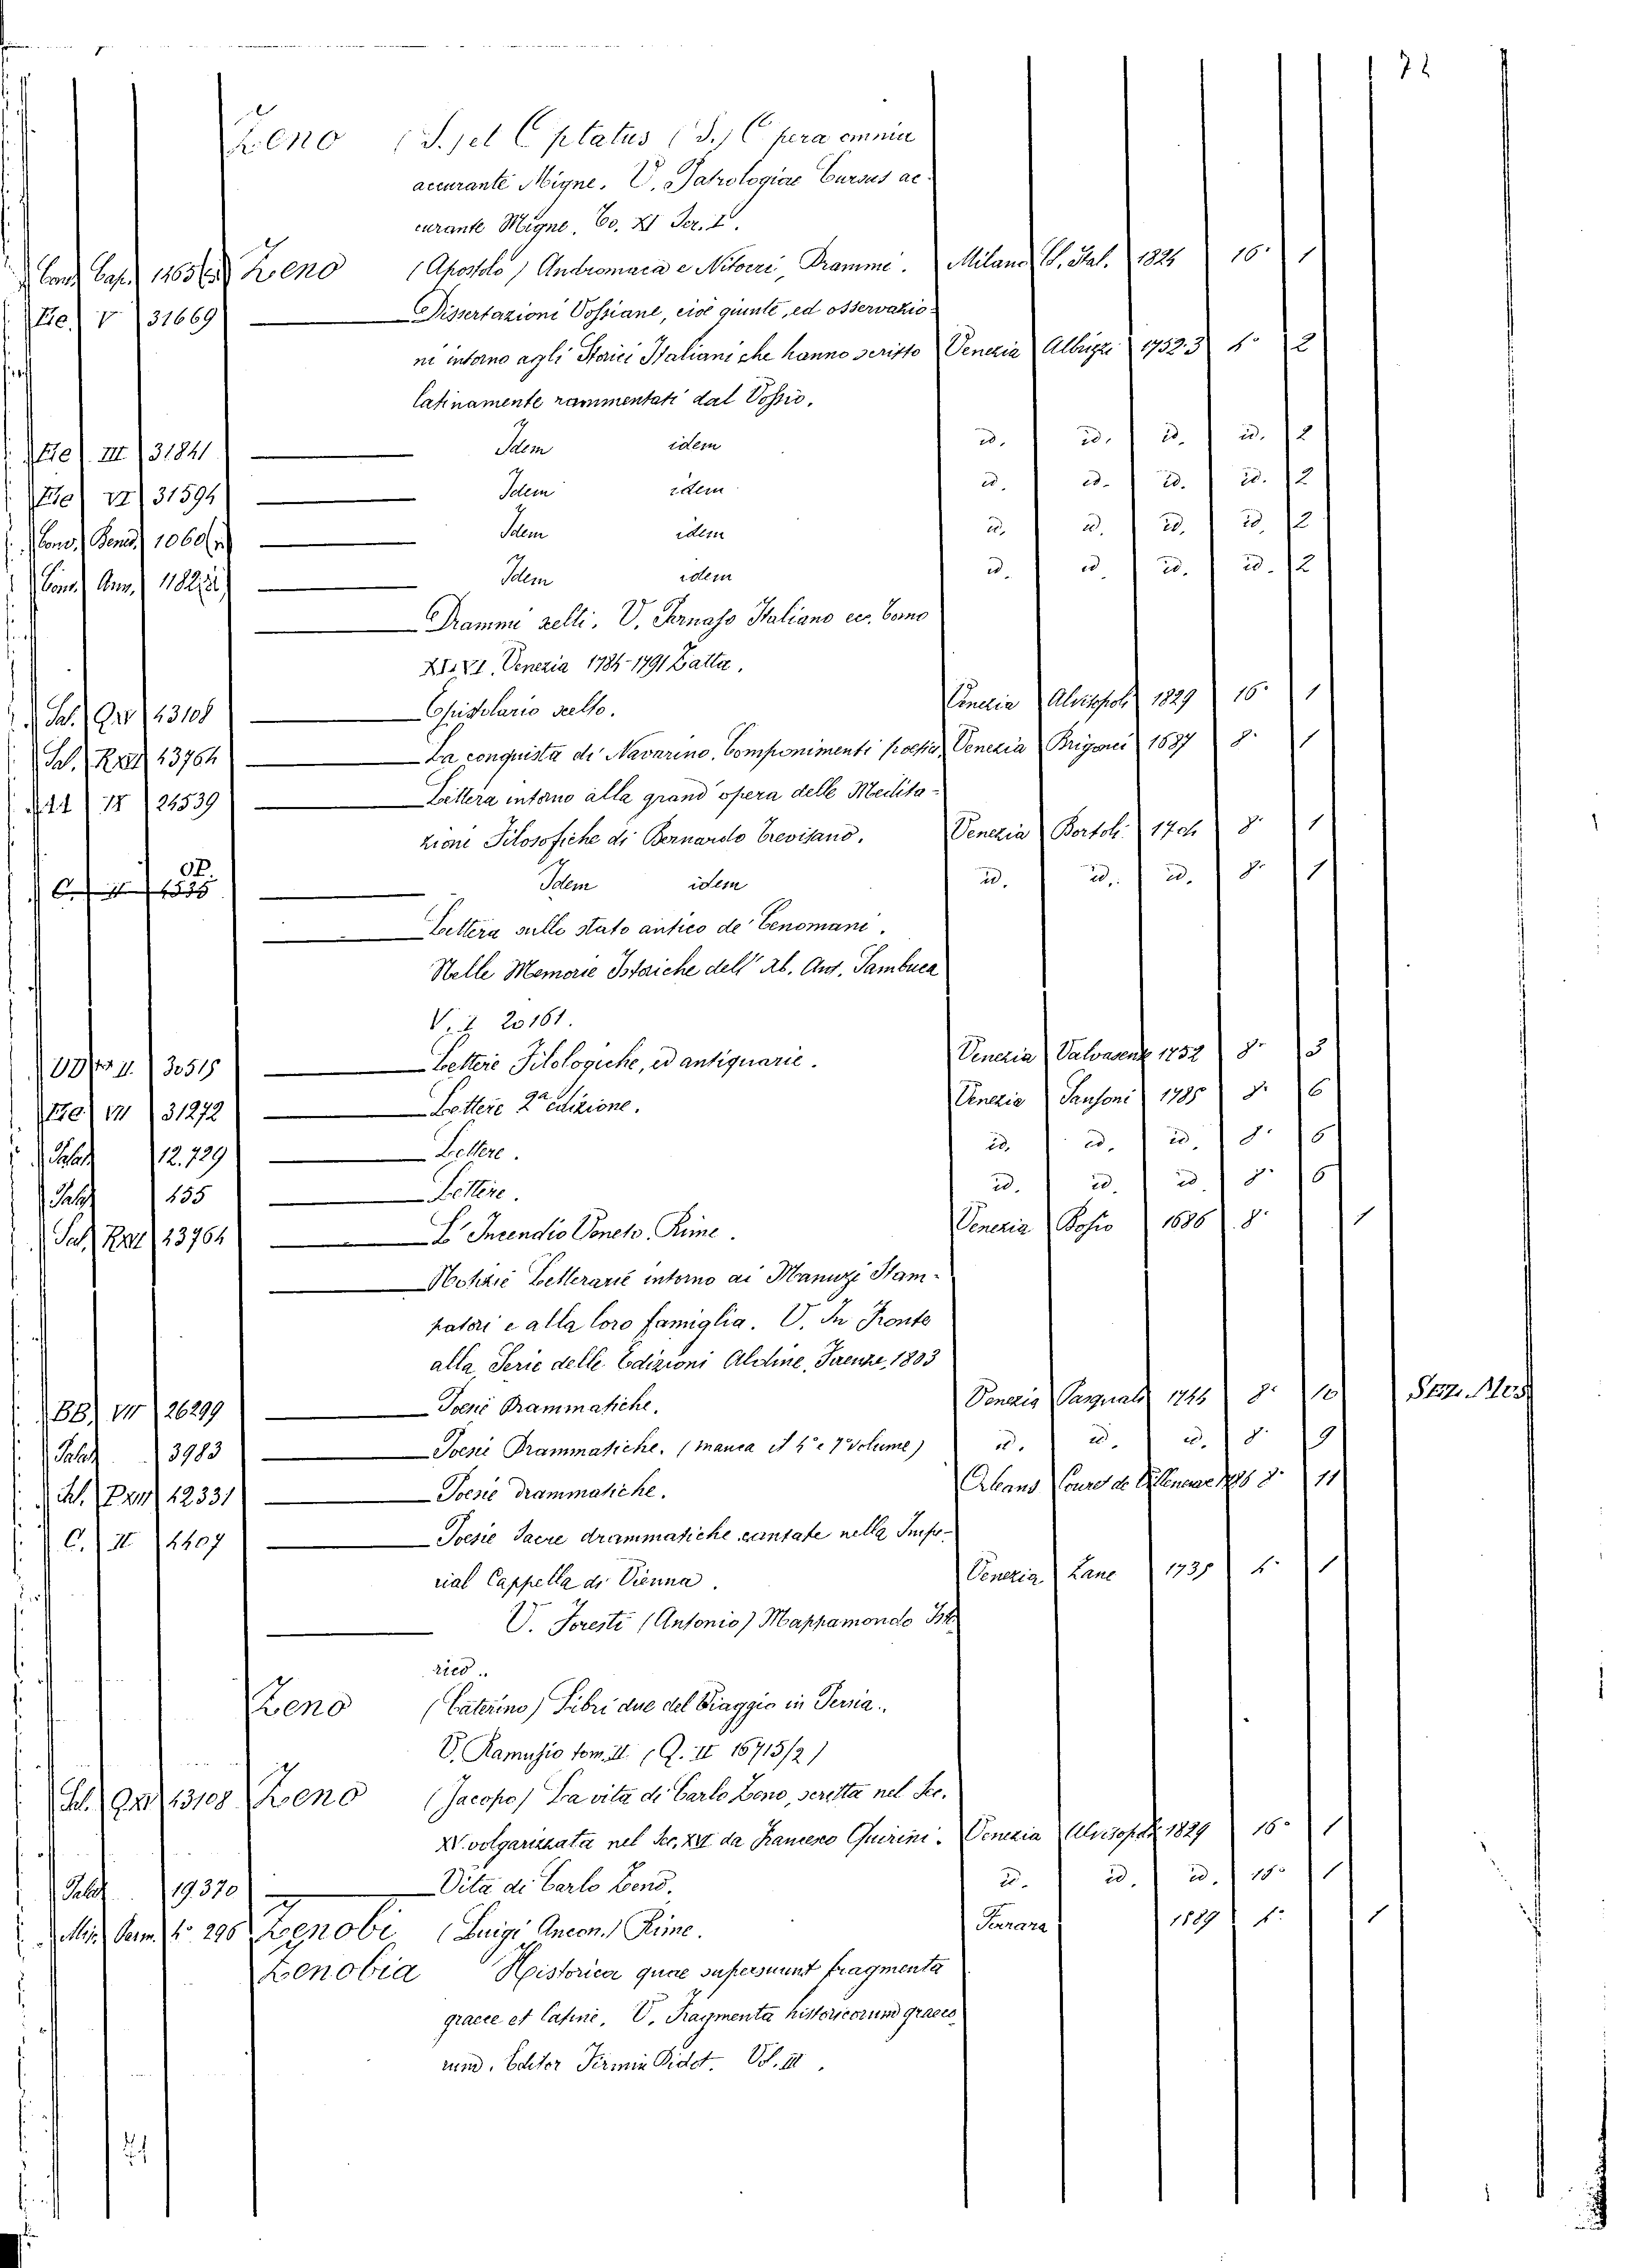 72
Zeno (S.) et Optatus (S.) Opera omnia
accurante Migne. V. Patrologiae Cursus ac-
curante Migne. To. XI Ser. I.
Conv. Cap. Zeno (Apostolo) Andromaca e Nitocri, Drammi. Milano 1824 16° 1
V 31669 Dissertazioni Vossiane, cioè giunte, ed osservazio-
ni intorno agli Storici Italiani che hanno scritto Venezia Albrizzi 1752.3 4° 2
latinamente rammentati dal Vossio.
III 31841 Idem idem id. id. id. id. 2
VI 31594 Idem idem id. id. id. id. 2
Conv. 1060 Idem idem id. id. id. id. 2
Conv. Ann. Idem idem id. id. id. id. 2
Drammi scelti. V. Parnaso Italiano ec. Tomo
Venezia 1784-1791 Zatta.
Sal. 23108 Epistolario scelto. Venezia Alvisopoli 1829 16° 1
Sal. 23764 La conquista di Navarino. Componimenti poetici Venezia Brigonci 1687 8° 1
24539 Lettera intorno alla grand' opera delle Medita-
zioni Filosofiche di Bernardo Trevisano. Venezia Bortoli 1704 8° 1
Idem idem id. id. id. 8° 1
Lettera sullo stato antico de' Cenomani.
Nelle Memorie Istoriche dell' Ab. Ant. Sambuca
V. Z 20161.
30515 Lettere Filologiche, ed antiquarie. Venezia Valvasense 1752 8° 3
VII 31272 Lettere 2a edizione. Venezia Sansoni 1785 8° 6
Palat. 12.729 Lettere. id. id. id. 8° 6
Palat. 455 Lettere. id. id. id. 8° 6
Sal. 23764 L' Incendio Veneto. Rime. Venezia Bosio 1686 8° 1
Notizie Letterarie intorno ai Manuzi Stam-
patori e alla loro famiglia. V. In Fronte
alla Serie delle Edizioni Aldine, Firenze, 1803
BB. VII 26299 Poesie Drammatiche. Venezia Pasquali 1744 8° 10
Palat. 3983 Poesie Drammatiche. (manca il 4° e 7° volume) id. id. id. 8° 9
Sal. 22331 Poesie drammatiche. Orleans Couret de Villeneuve 8° 11
C. II 4407 Poesie Sacre drammatiche cantate nella Impe-
rial Cappella di Vienna. Venezia Zane 1735 4° 1
V. Foresti (Antonio) Mappamondo Ist
rico.
Zeno (Caterino) Libri due del Viaggio in Persia.
V. Ramusio tom. II. (Q. II 16715/2)
Sal. 23108 Zeno (Jacopo) La vita di Carlo Zeno, scritta nel Sec.
XV. volgarizzata nel Sec. XVI da Francesco Quirini. Venezia Alvisopoli 1829 16° 1
Palat. 19370 Vita di Carlo Zeno. id. id. id. 16° 1
Misc. 4° 296 Zenobi (Luigi Ancon.) Rime. Ferrara 1589 4° 1
Zenobia Historica quae supersunt fragmenta
graece et latine. V. Fragmenta historicorum graeco
rum. Editor Firmin Didot. Vol. III.